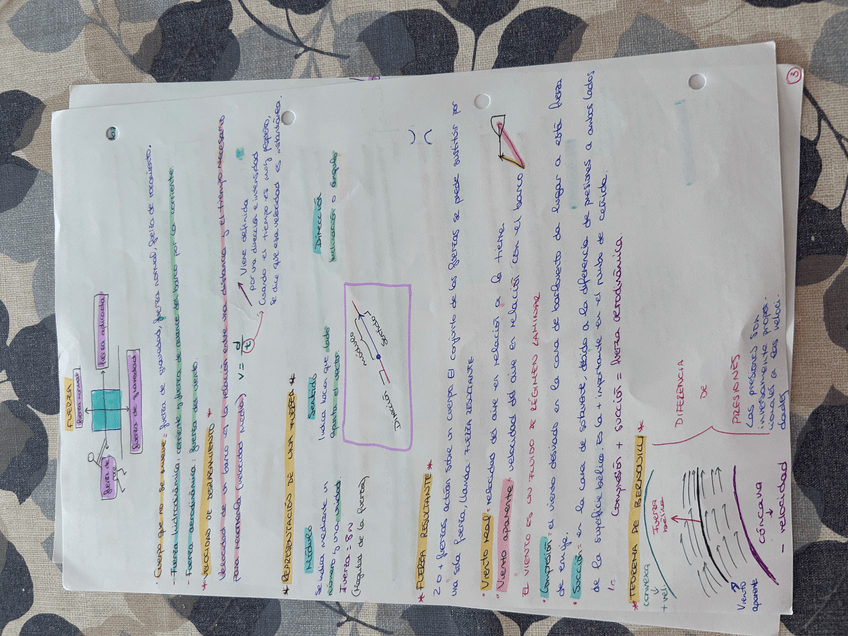 FUERZA
fuerza normal
fuerza aplicada
fuerza de roz.
fuerza de gravedad
- Cuerpo que no se mueve = fuerza de gravedad, fuerza normal, fuerza de rozamiento.
- Fuerza hidrodinámica: corriente y fuerza de avance del barco por la corriente
- Fuerza aerodinámica: fuerza del viento.
* VELOCIDAD DE DESPLAZAMIENTO *
Velocidad de un barco es la relación entre una distancia y el tiempo necesario
para recorrerla (velocidad media) V = d/t
Viene definida
por una dirección e intensidad
Cuando el tiempo es muy pequeño,
se dice que esa velocidad es instantánea.
* REPRESENTACIÓN DE UNA FUERZA *
Módulo
Se indica mediante un
número y una unidad
Fuerza = 8N
(Magnitud de la fuerza)
Sentido
Indica hacia que lado
apunta el vector.
Dirección
Inclinación o ángulo
Módulo
Sentido
Dirección
* FUERZA RESULTANTE *
2 o + fuerzas actúan sobre un cuerpo. El conjunto de las fuerzas se puede sustituir por
una sola fuerza, llamada FUERZA RESULTANTE
• Viento real: velocidad del aire en relación a la tierra.
• Viento aparente: velocidad del aire en relación con el barco
EL VIENTO ES UN FLUIDO DE RÉGIMEN LAMINAR
• Compresión: el viento desviado en la cara de barlovento da lugar a esta fuerza
de empuje.
• Succión: en la cara de sotavento debido a la diferencia de presiones a ambos lados
de la superficie bélica. Es la + importante en el rumbo de ceñida.
Compresión + succión = fuerza aerodinámica.
* TEOREMA DE BERNOUILLI *
convexa
+ vel
Fuerza
Viento
aparente
cóncava
- velocidad
DIFERENCIA
DE
PRESIONES
Las presiones son
inversamente propor-
cionales a las veloci-
dades
3